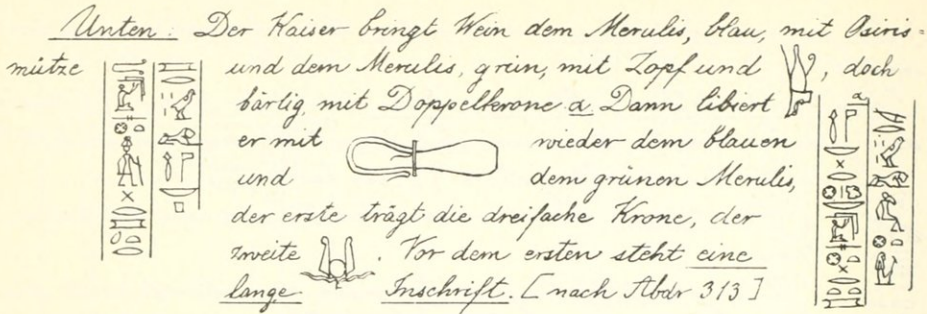 Unten: Der Kaiser bringt Wein dem Merulis, blau, mit Osiris=
mütze und dem Merulis, grün, mit Zopf und , doch
bärtig mit Doppelkrone a. Dann libiert
er mit wieder dem blauen
und dem grünen Merulis,
der erste trägt die dreifache Krone, der
zweite . Vor dem ersten steht eine
lange Inschrift. [nach Abdr 313]
a